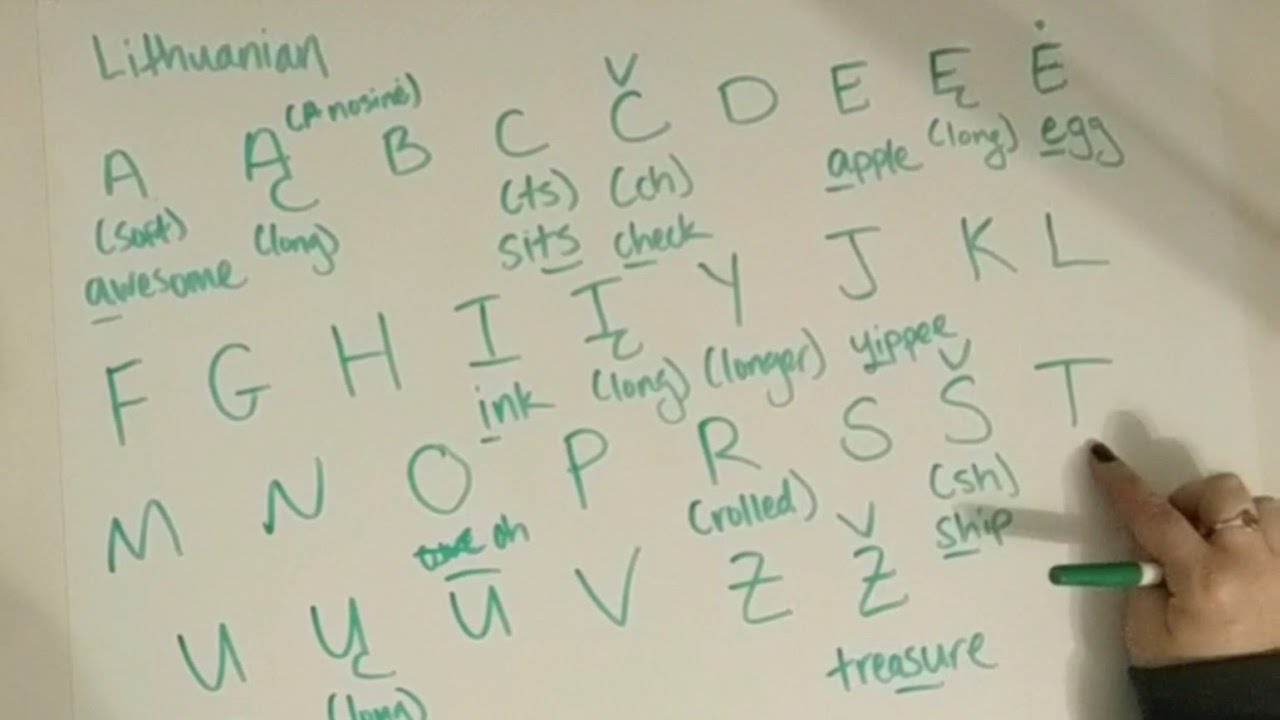 Lithuanian
A Ą (A nosinė) B C Č D E Ę Ė
(soft) (long) (ts) (ch) apple (long) egg
awesome sits check
F G H I Į Y J K L
ink (long) (longer) yippee
M N O P R S Š T
oh (rolled) (sh)
ship
U Ų Ū V Z Ž
(long) treasure